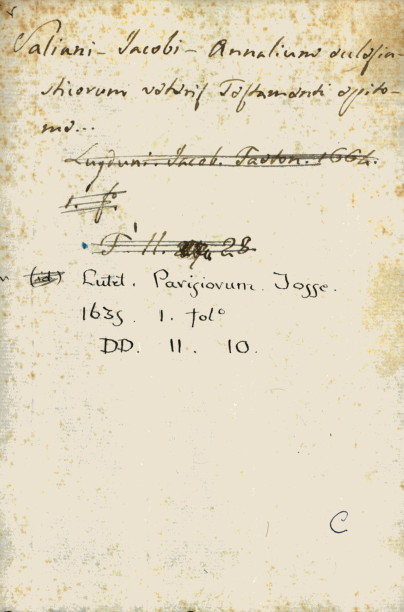 Saliani - Jacobi - Annalium ecclesia-
sticorum veteris Testamenti epito-
me...
Lugduni. Jacob. 1664.
1. f.º
F 11. 28
(id) Lutet. Parisiorum. Josse.
1635. 1. folº
DD. 11. 10.
C